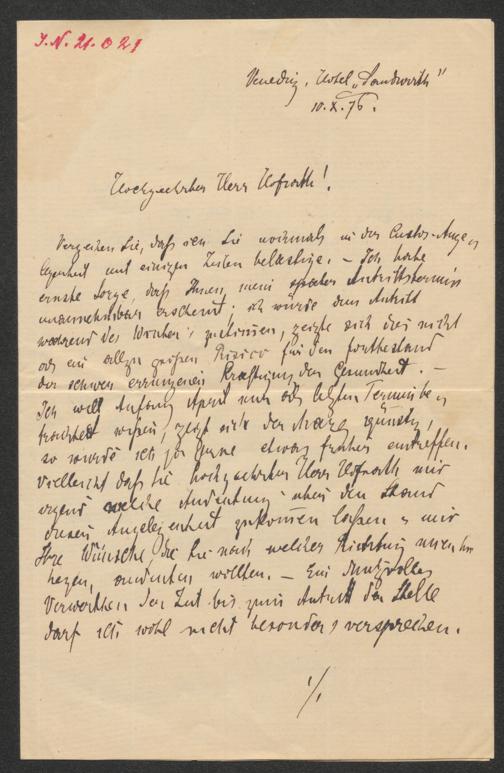 J.N. 21.021
Venedig, Hotel „Sandwirth"
10.X.76.
Hochgeehrter Herr Hofrath!
Verzeihen Sie, daß ich Sie nochmals in der Custos-Ange=
legenheit mit einigen Zeilen belästige. – Ich habe
ernste Sorge, daß Ihnen mein später Antrittstermin
unannehmbar erscheint; ich würde den Antritt
während des Winters, zeigte sich dies nicht
als ein allzu großes Risico für den Fortbestand
der schwer errungenen Kräftigung der Gesundheit. –
Ich will Anfang April nur als letzten Termin be=
trachtet wissen, zeigt sich der März günstig,
so würde ich ja gerne etwas früher eintreffen.
Vielleicht daß Sie hochgeehrter Herr Hofrath mir
irgend welche Andeutung über den Stand
dieser Angelegenheit zukommen laßen u mir
Ihre Wünsche die Sie nach welcher Richtung immer
hegen, andeuten wollten. – Ein
Verwerthen der Zeit bis zum Antritt der Stelle
darf ich wohl nicht besonders versprechen.
./.